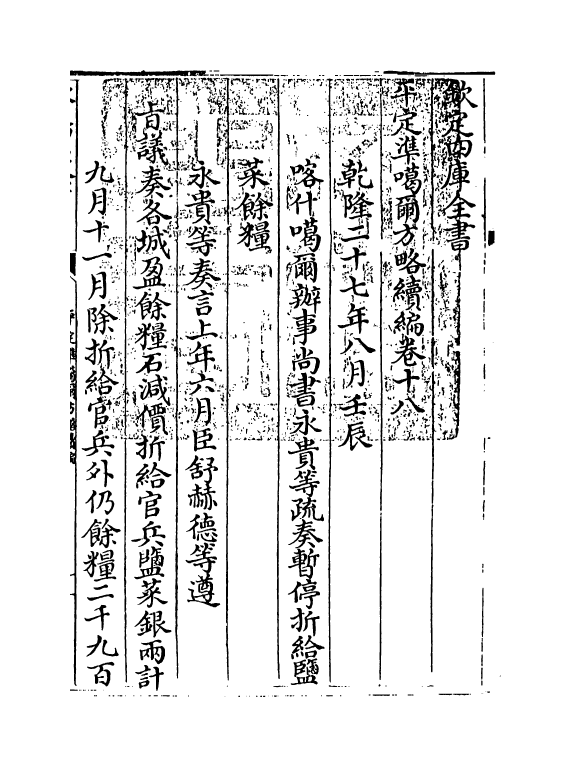 欽定四庫全書
平定準噶爾方略續編卷十八
乾隆二十七年八月壬辰
喀什噶爾辦事尚書永貴等疏奏暫停折給鹽
菜餘糧
永貴等奏言上年六月臣舒赫德等遵
㫖議奏各城盈餘糧石減價折給官兵鹽菜銀兩計
九月十一月除折給官兵外仍餘糧二千九百